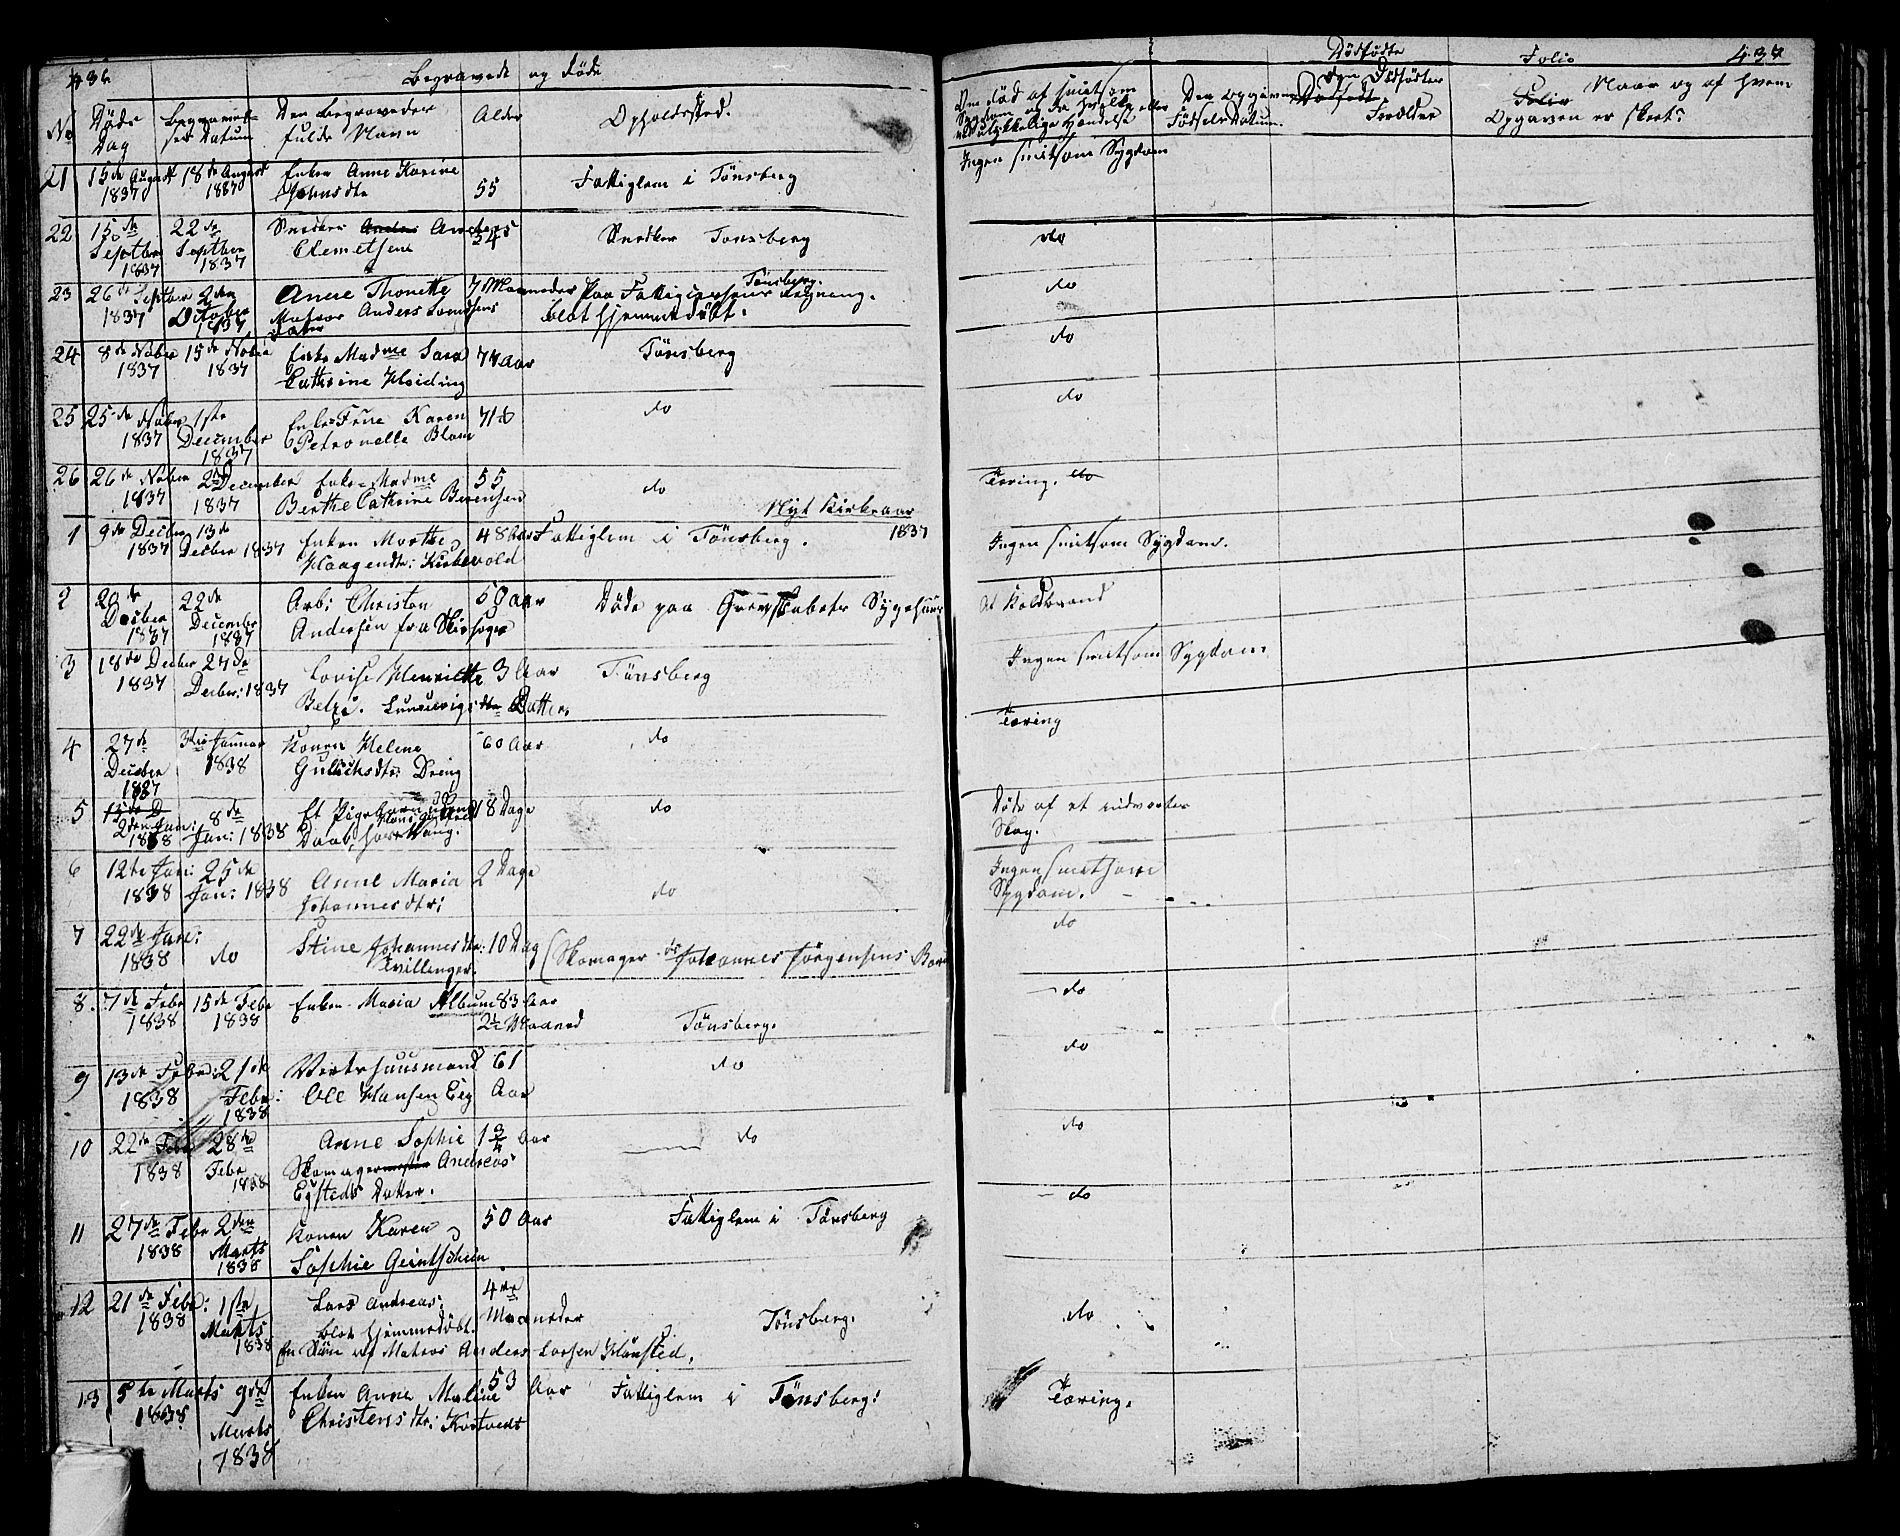 436
Begravede og Døde
No
Døds Dag
Begravelses Datum
Den Begravedes fulde Navn
Alder
Opholdssted.
21 15de August 1837 18de August 1837 Enken Anne Karine Johnsdtr 55 Fattiglem i Tønsberg
22 15de Septber 1837 22de Septber 1837 Snedker Anders Clemetsen 54 Snedker Tønsberg
23 26de Septbr 1837 2den October 1837 Anne Thonette Matros Anders datter 7 Maaneder Paa Fattigcassens Regning. Tønsberg. blot hjemmedøbt.
24 8de Nober 1837 15de Nober 1837 Enke Madme Sara Cathrine 74 Aar Tønsberg
25 25de Nober 1837 1ste December 1837 Enke Frue Karen Petronelle Blom 71 do
26 26de Nober 1837 2den December 1837 Enke Madme Berthe Cathrine Berensen 55 do
Nyt Kirkeaar 1837
1 9de Decber 1837 13de Decber 1837 Enken Marthe Haagensdtr: 48 Aar Fattiglem i Tønsberg.
2 20de Decber 1837 22de December 1837 Arb: Christen Andersen fra 50 Aar Døde paa Grevskabets Sygehuus
3 18de Decber 1837 27de Decber: 1837 Lovise Henriette 3 Aar Tønsberg
Datter.
4 27de Decber 1837 3die Januar 1838 Konen Helene Gulichsdtr: 60 Aar do
5 2den Jan: 1838 8de Jan: 1838 Et Pigebarn uden Daab, 8 Dage do
6 12te Jan: 1838 25de Jan: 1838 Anne Maria Johannesdtr: 2 Dage do
7 22de Jan: 1838 do Stine Johannesdtr: Tvillinger. 10 Dag (Skomager Johannes Jørgensens Barn
8. 7de Febr 1838 15de Febr 1838 Enken Maria Album 83 Aar 2½ Maaned Tønsberg.
9 13de Febr: 1838 21de Febr: 1838 Vertshuusmand Ole Hansen Eeg 61 Aar do
10 22de Febr 1838 28de Febr 1838 Anne Sophie Skomagermester Andreas Egsteds Datter. 1¾ Aar do
11 27de Febr 1838 2den Marts 1838 Konen Karen Sophie 50 Aar Fattiglem i Tønsberg
12 21de Febr: 1838 1ste Marts 1838 Lars Andreas: blot hjemmedøbt. 4 Maaneder Tønsberg.
En Søn af Matros Anders Larsen
13 5te Marts 1838 9de Marts 1838 Enken Anne Malene Christensdtr: 53 Aar Fattiglem i Tønsberg:
Dødfødte
Folio
437
Om død af smitsom Sygdom og da hvilken eller ulykkelige Hændelse
Den opgivne Fødsels Datum.
Dødfødt
Den Dødfødtes Forældre
Folio
Naar og af hvem Opgaven er skeet?
Ingen smitsom Sygdom
do
do
do
do
Tæring. do
Ingen smitsom Sygdom.
Af Koldbrand
Ingen smitsom Sygdom
Tæring
Døde af et indvortes Slag.
Ingen smitsom Sygdom.
do
do
do
do
do
do
Tæring.